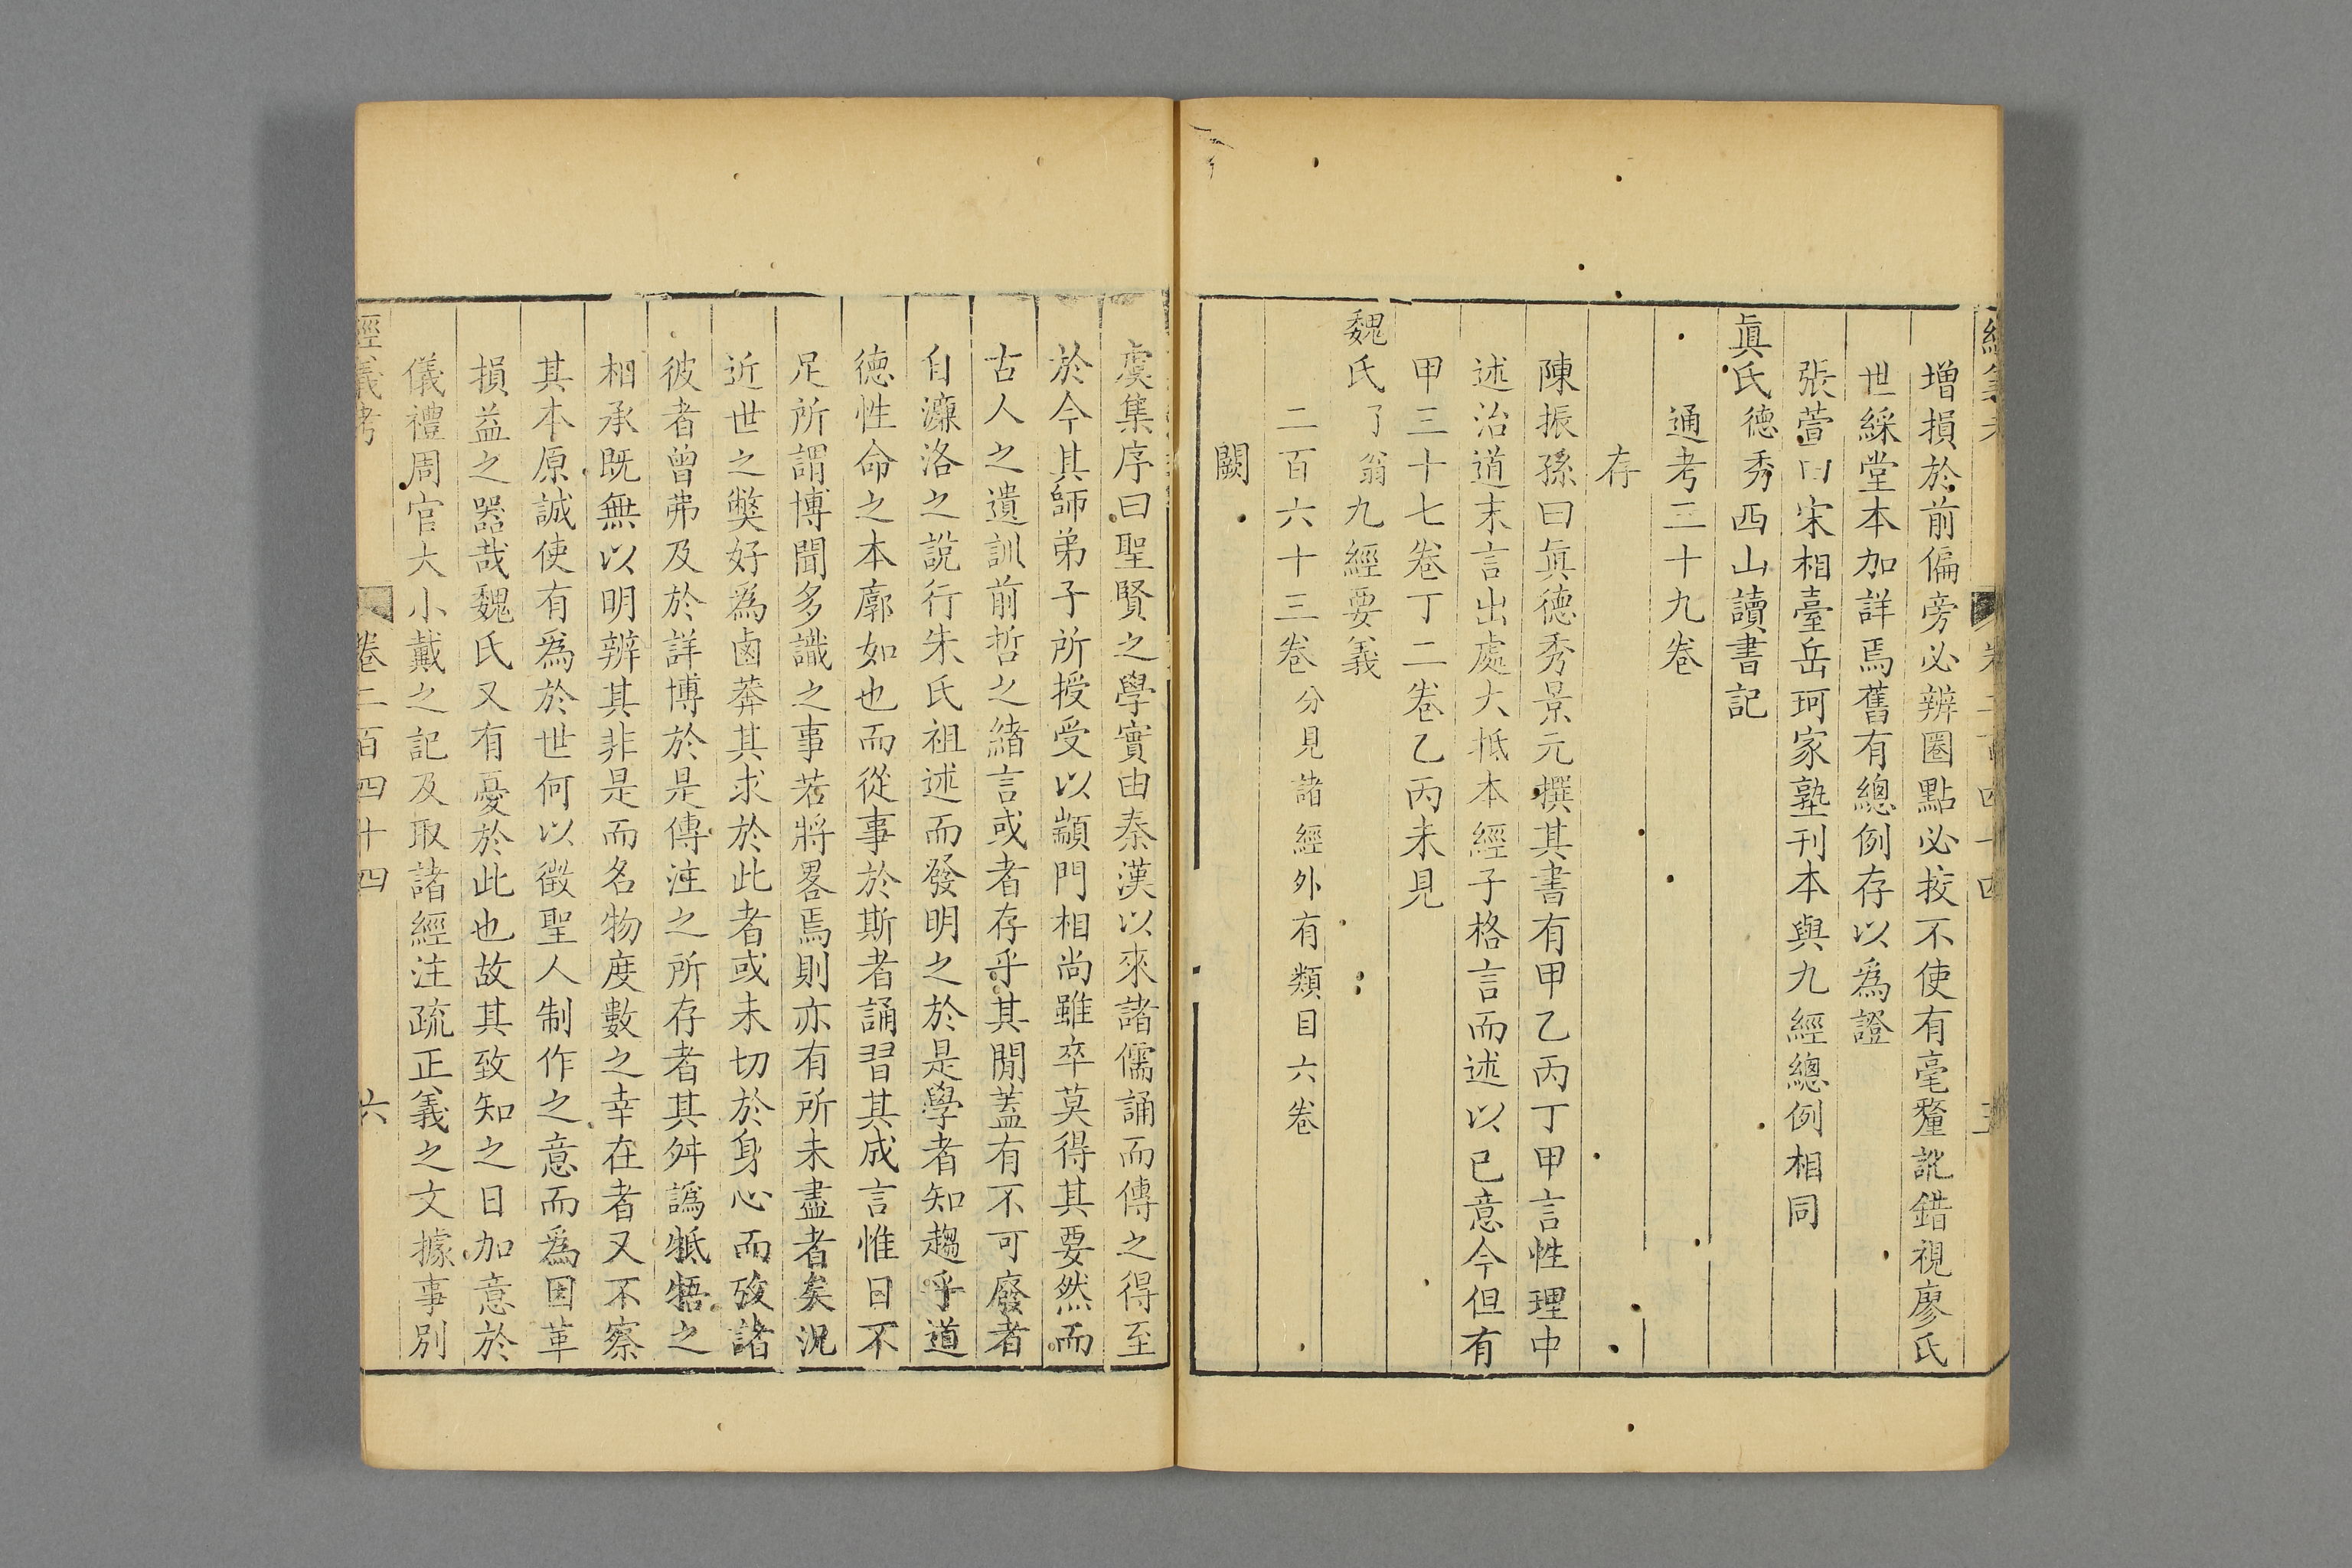 增損於前偏旁必辨圈點必挍不使有毫釐訛錯視廖氏
世綵堂本加詳焉舊有總例存以爲證
張萱曰宋相臺岳珂家塾刊本與九經總例相同
眞氏德秀西山讀書記
通考三十九卷
存
陳振孫曰眞德秀景元撰其書有甲乙丙丁甲言性理中
述治道末言出處大抵本經子格言而述以已意今但有
甲三十七卷丁二卷乙丙未見
魏氏了翁九經要義
二百六十三卷分見諸經外有類目六卷
闕
虞集序曰聖賢之學實由秦漢以來諸儒誦而傳之得至
於今其師弟子所授受以顓門相尚雖卒莫得其要然而
古人之遺訓前哲之緖言或者存乎其閒蓋有不可廢者
自濂洛之說行朱氏祖述而發明之於是學者知趨乎道
德性命之本廓如也而從事於斯者誦習其成言惟日不
足所謂博聞多識之事若將畧焉則亦有所未盡者矣況
近世之獘好爲鹵莽其求於此者或未切於身心而攷諸
彼者曾弗及於詳博於是傳注之所存者其舛譌牴牾之
相承旣無以明辨其非是而名物度數之幸在者又不察
其本原誠使有爲於世何以徵聖人制作之意而爲因革
損益之器哉魏氏又有憂於此也故其致知之日加意於
儀禮周官大小戴之記及取諸經注疏正義之文據事別
經義考 卷二百四十四 六